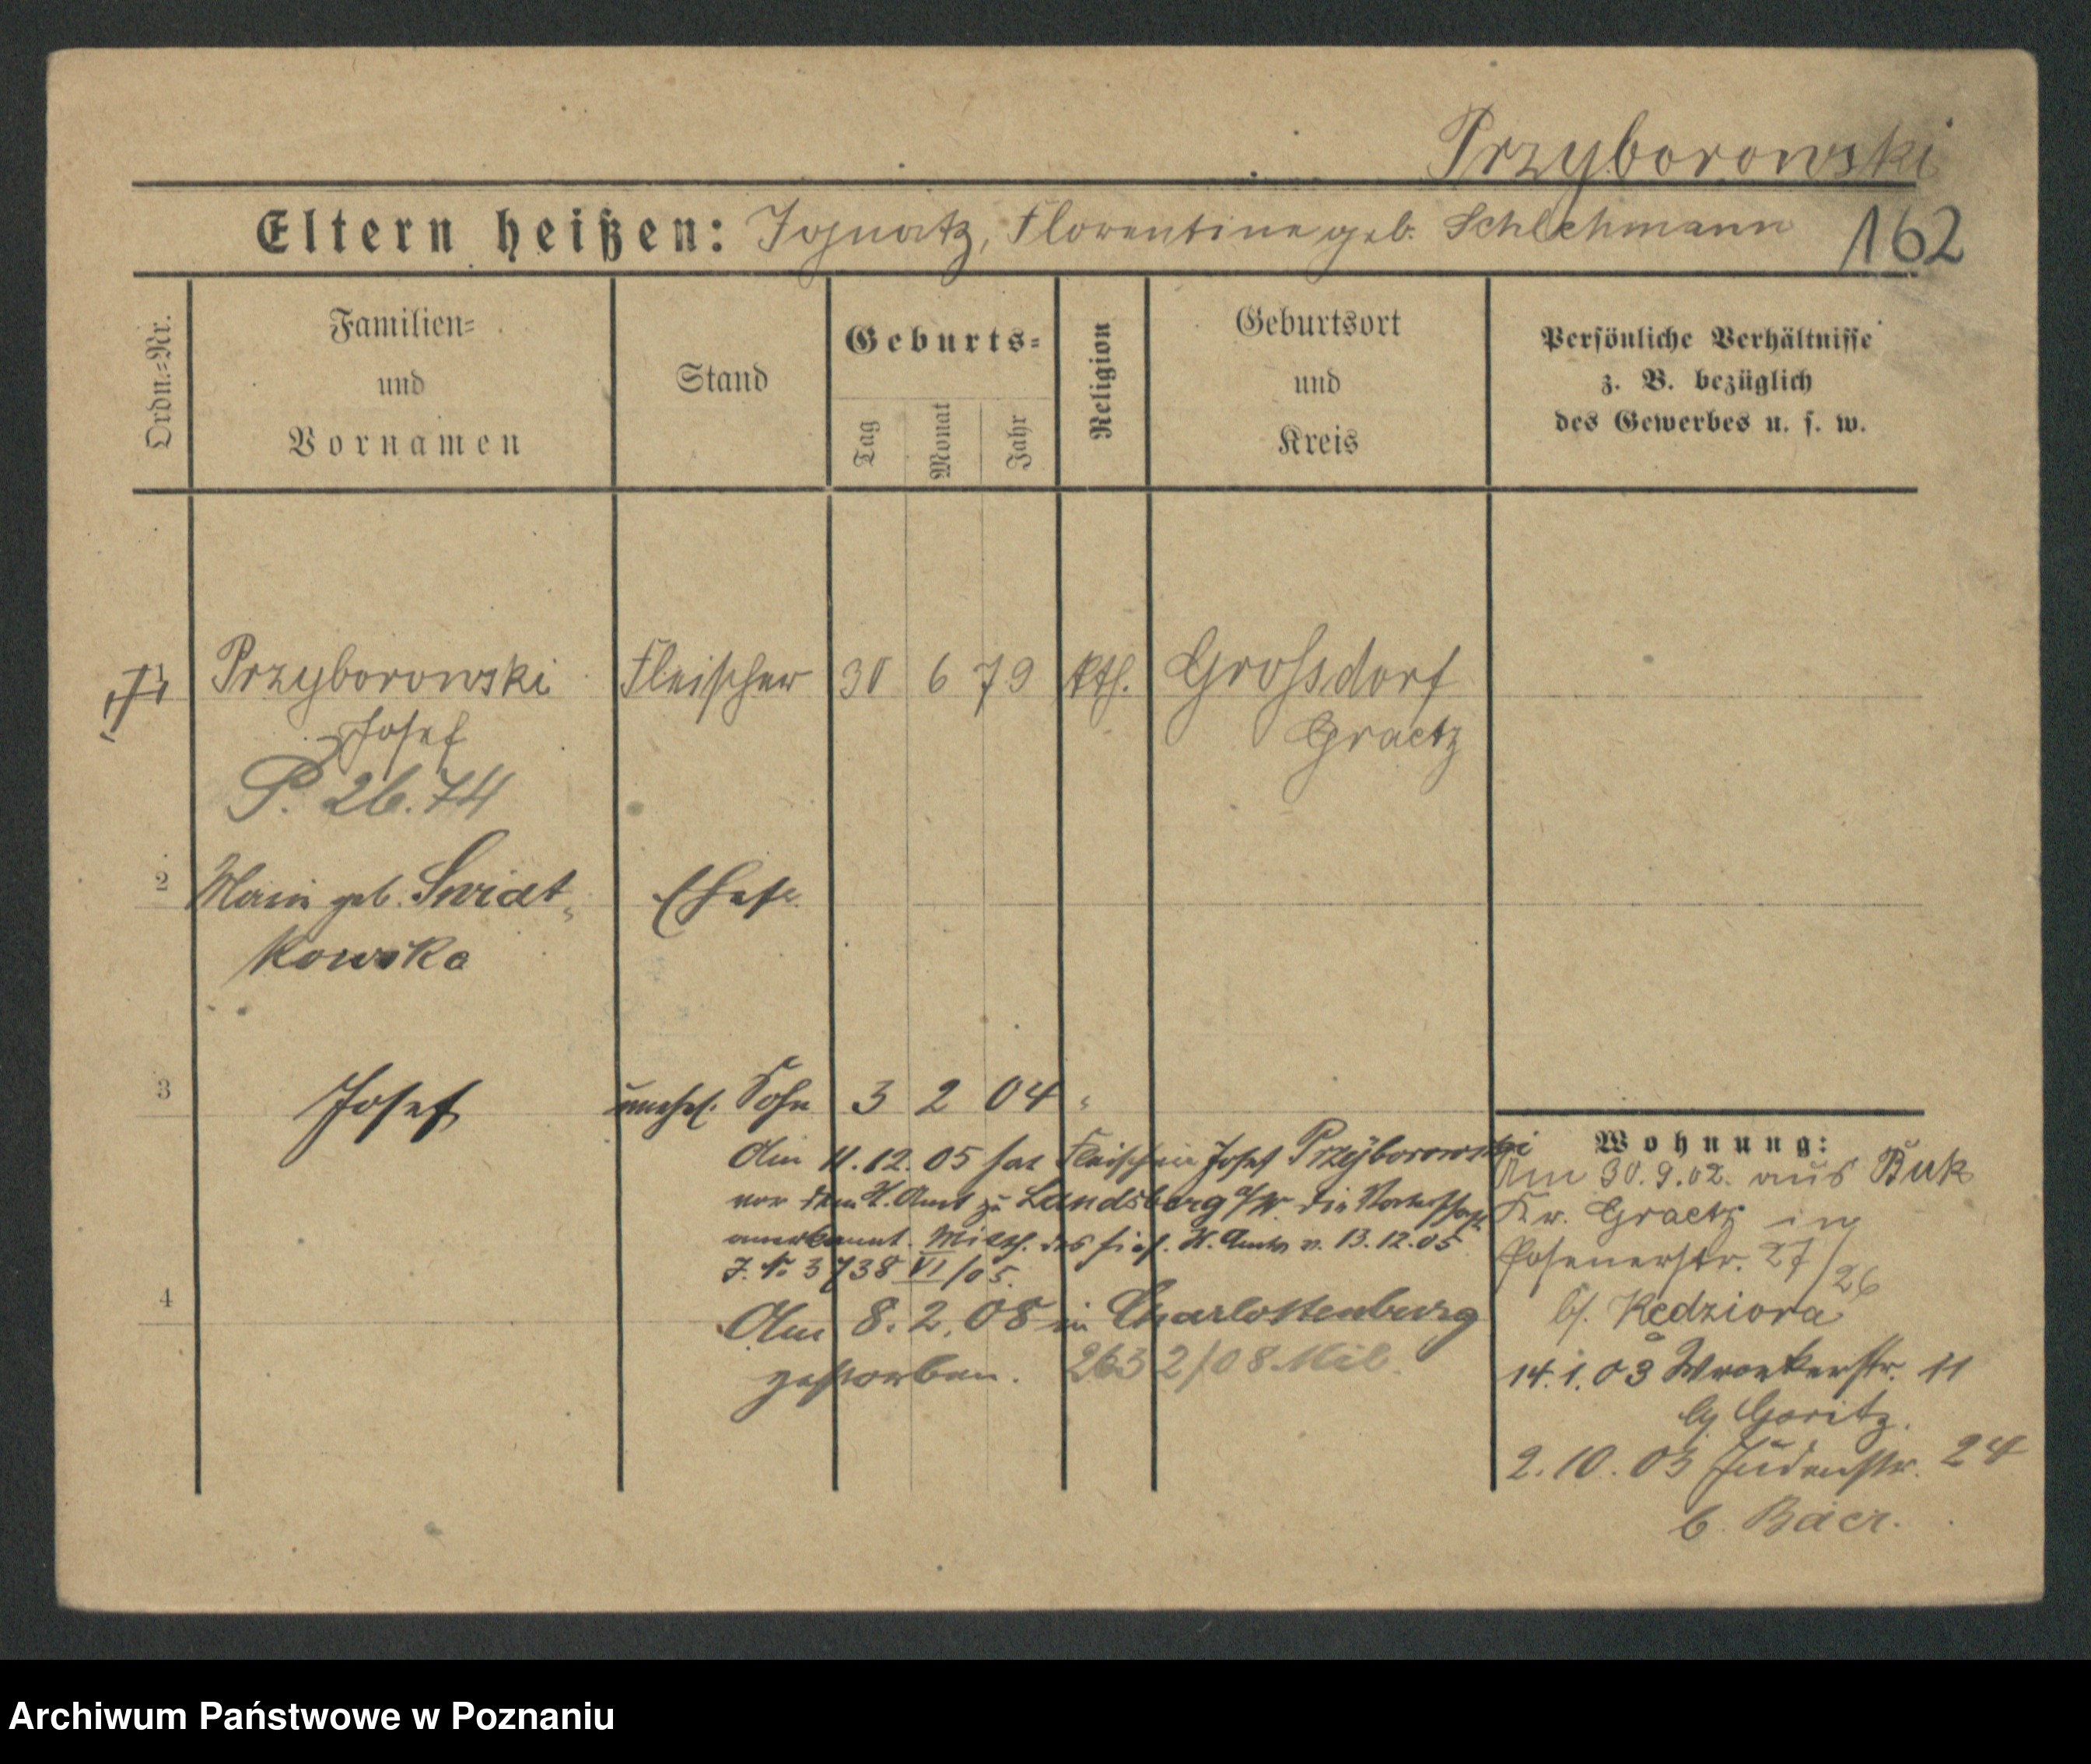 Przyborowski
Eltern heißen: Ignatz, Florentine geb. Schlehmann 162
Ordn.=Nr.
Familien=
und
Vornamen
Stand
Geburts=
Tag
Monat
Jahr
Religion
Geburtsort
und
Kreis
Persönliche Verhältnisse
z. B. bezüglich
des Gewerbes u. s. w.
1 Przyborowski Fleischer 30 6 79 kth. Grossdorf
Josef Graetz
P. 26.74
2 Marie geb. Swiat- Ehefr.
kowska
3 Josef unehel. Sohn 3 2 04 "
Am 11.12.05 hat Fleischer Josef Przyborowski
vor dem St. Amt zu Landsberg a/W die Vaterschaft
anerkannt. Mitth. des hies. St. Amts v. 13.12.05
J. No 3738 VI/05.
4
Am 8.2.08 in Charlottenburg
gestorben. 2632/08 Mil.
Wohnung:
Am 30.9.02. aus Buk
Kr. Graetz in
Posenerstr. 27/26
b/. Kędziora
14.1.03 Wronkerstr. 11
b/ Goritz.
2.10.03 Judenstr. 24
b. Baer.
Archiwum Państwowe w Poznaniu